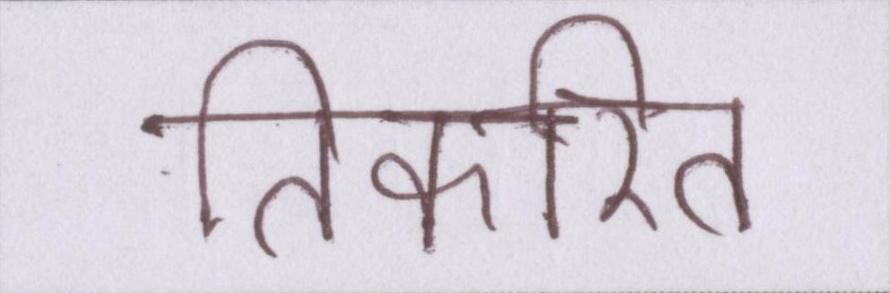 तिकरित